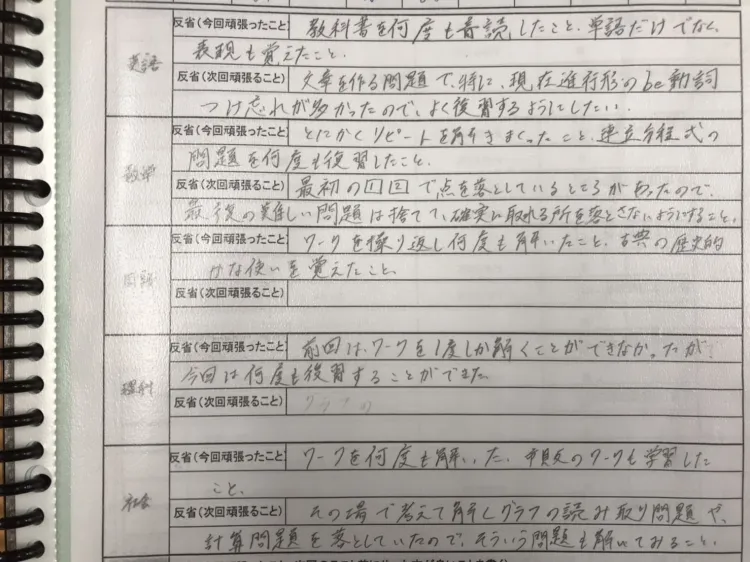 英語
反省(今回頑張ったこと) 教科書を何度も音読したこと、単語だけでなく
表現も覚えたこと、
反省(次回頑張ること) 文章を作る問題で、特に、現在進行形のbe動詞
つけ忘れが多かったので、よく復習するようにしたい.
数学
反省(今回頑張ったこと) とにかくリピートを解きまくったこと、連立方程式の
問題を何度も復習したこと、
反省(次回頑張ること) 最初の で点を落としているところがあったので、
最後の難しい問題は捨てて、確実に取れる所を落とさないようにすること、
国語
反省(今回頑張ったこと) ワークを繰り返し何度も解いたこと、古典の歴史的
かな使いを覚えたこと、
反省(次回頑張ること)
理科
反省(今回頑張ったこと) 前回は、ワークを1度しか解くことができなかったが
今回は何度も復習することができた
反省(次回頑張ること) グラフの
社会
反省(今回頑張ったこと) ワークを何度も解いた、 のワークも学習した
こと、
反省(次回頑張ること) その場で考えて解くグラフの読み取り問題や、
計算問題を落としていたので、そういう問題も解いてみること、